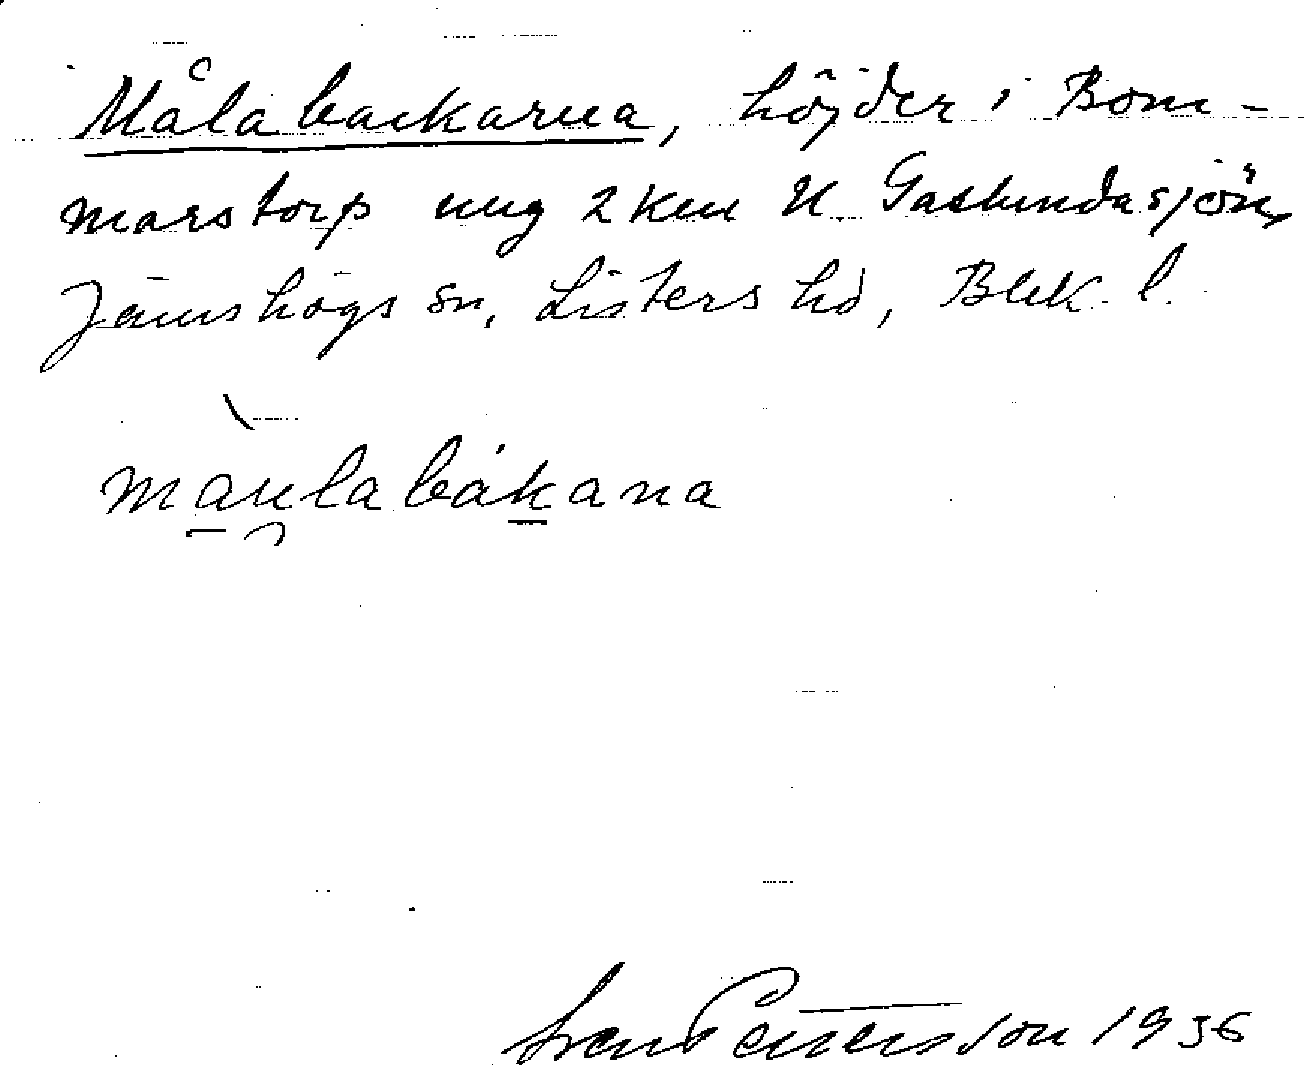 Målabackarna, höjder i Bom-
marstorp ung 2 km N. Gaslundasjön,
Jämshögs sn, Listers hd, Blek. l.
màulabákana
Sven Petersson 1936